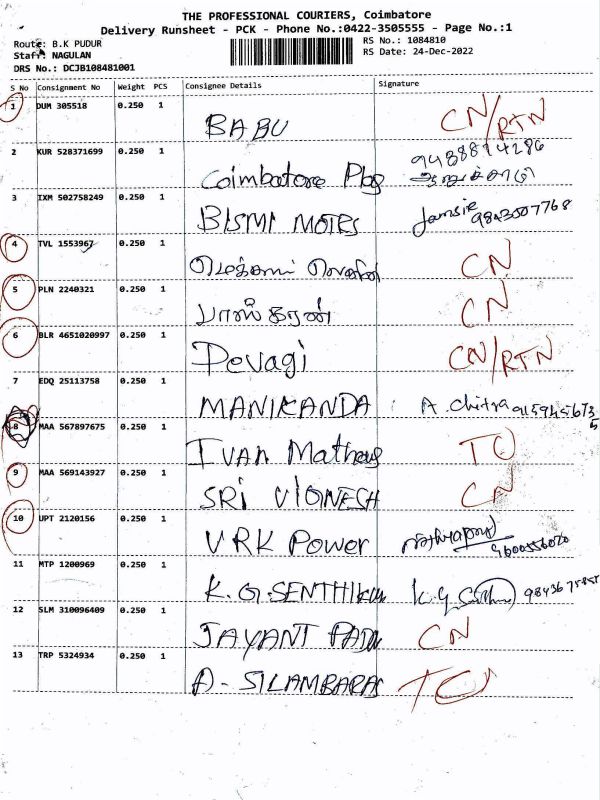 THE PROFESSIONAL COURIERS, Coimbatore
Delivery Runsheet - PCK - Phone No.:0422-3505555 - Page No.:1
Route: B.K PUDUR
RS No.: 1084810
Staff: NAGULAN
RS Date: 24-Dec-2022
DRS No.: DCJB108481001
S No Consignment No Weight PCS Consignee Details Signature
1 DUM 305518 0.250 1 BABU CN/RTN
2 KUR 528371699 0.250 1 Coimbatore Pbg
3 IXM 502758249 0.250 1 BISMI MOTRS Jamsir 9843007768
4 TVL 1553967 0.250 1 CN
5 PLN 2240321 0.250 1 பாஸ்கரன் CN
6 BLR 4651020997 0.250 1 Devagi CN/RTN
7 EDQ 25113758 0.250 1 MANIKANDA A. Chitra
8 MAA 567897675 0.250 1 IVAN Mathews TO
9 MAA 569143927 0.250 1 SRI VIGNESH CN
10 UPT 2120156 0.250 1 VRK Power 9600556020
11 MTP 1200969 0.250 1 K.G.SENTHIKUM
12 SLM 310096409 0.250 1 JAYANT PADU CN
13 TRP 5324934 0.250 1 A-SILAMBARAS TO